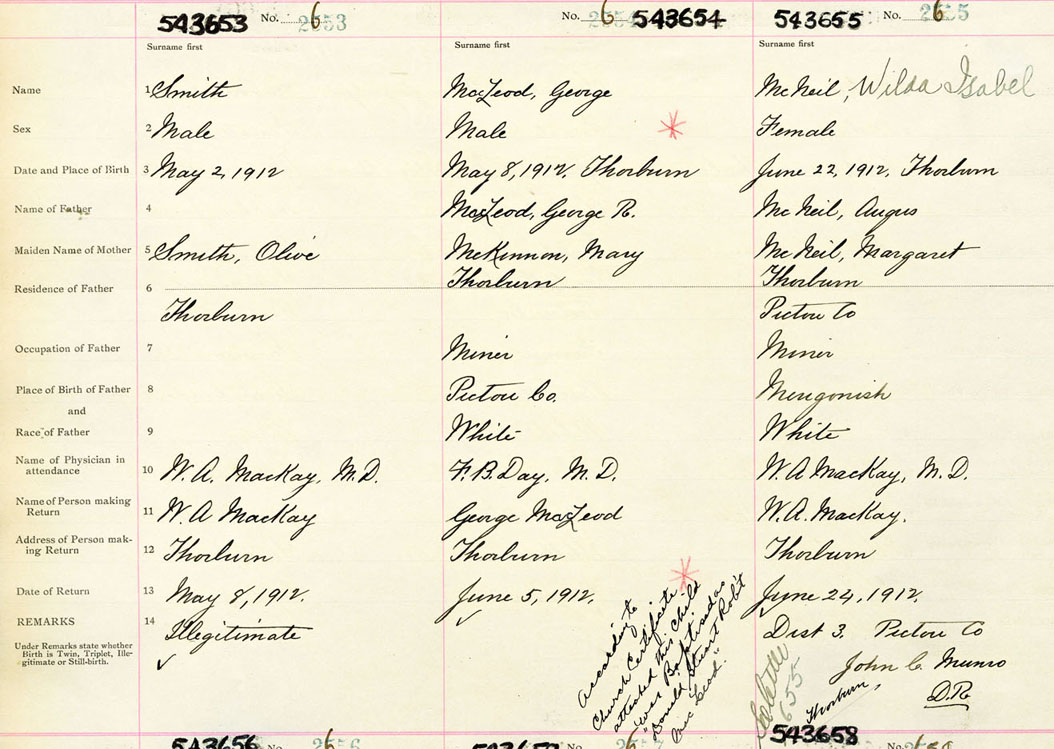 543653 No. 6 2553
No. 6 543654
543655 No. 6
Surname first
Surname first
Surname first
Name
1 Smith
MacLeod, George
McNeil, Wilda Isabel
Sex
2 Male
Male
Female
Date and Place of Birth
3 May 2, 1912
May 8, 1912. Thorburn
June 22, 1912. Thorburn
Name of Father
4
MacLeod, George R.
McNeil, Angus
Maiden Name of Mother
5 Smith, Olive
McKinnon, Mary
McNeil, Margaret
Residence of Father
6
Thorburn
Thorburn
Thorburn
Pictou Co
Occupation of Father
7
Miner
Miner
Place of Birth of Father
8
Pictou Co.
and
Race of Father
9
White
White
Name of Physician in
attendance
10 W. A. MacKay, M.D.
F. B. Day, M.D.
W. A MacKay, M.D.
Name of Person making
Return
11 W. A MacKay
George MacLeod
W. A. MacKay.
Address of Person mak-
ing Return
12 Thorburn
Thorburn
Thorburn
Date of Return
13 May 8, 1912.
June 5, 1912.
June 24, 1912.
REMARKS
14 Illegitimate
Under Remarks state whether
Birth is Twin, Triplet, Ille-
gitimate or Still-birth.
According to
Church Certificate
attached this child
"was Baptised as
Donald Stuart Rob't
Dist 3. Pictou Co
John C. Munro
D.R.
Thorburn,
655
543656 No. 6
No.
543658 No. 6